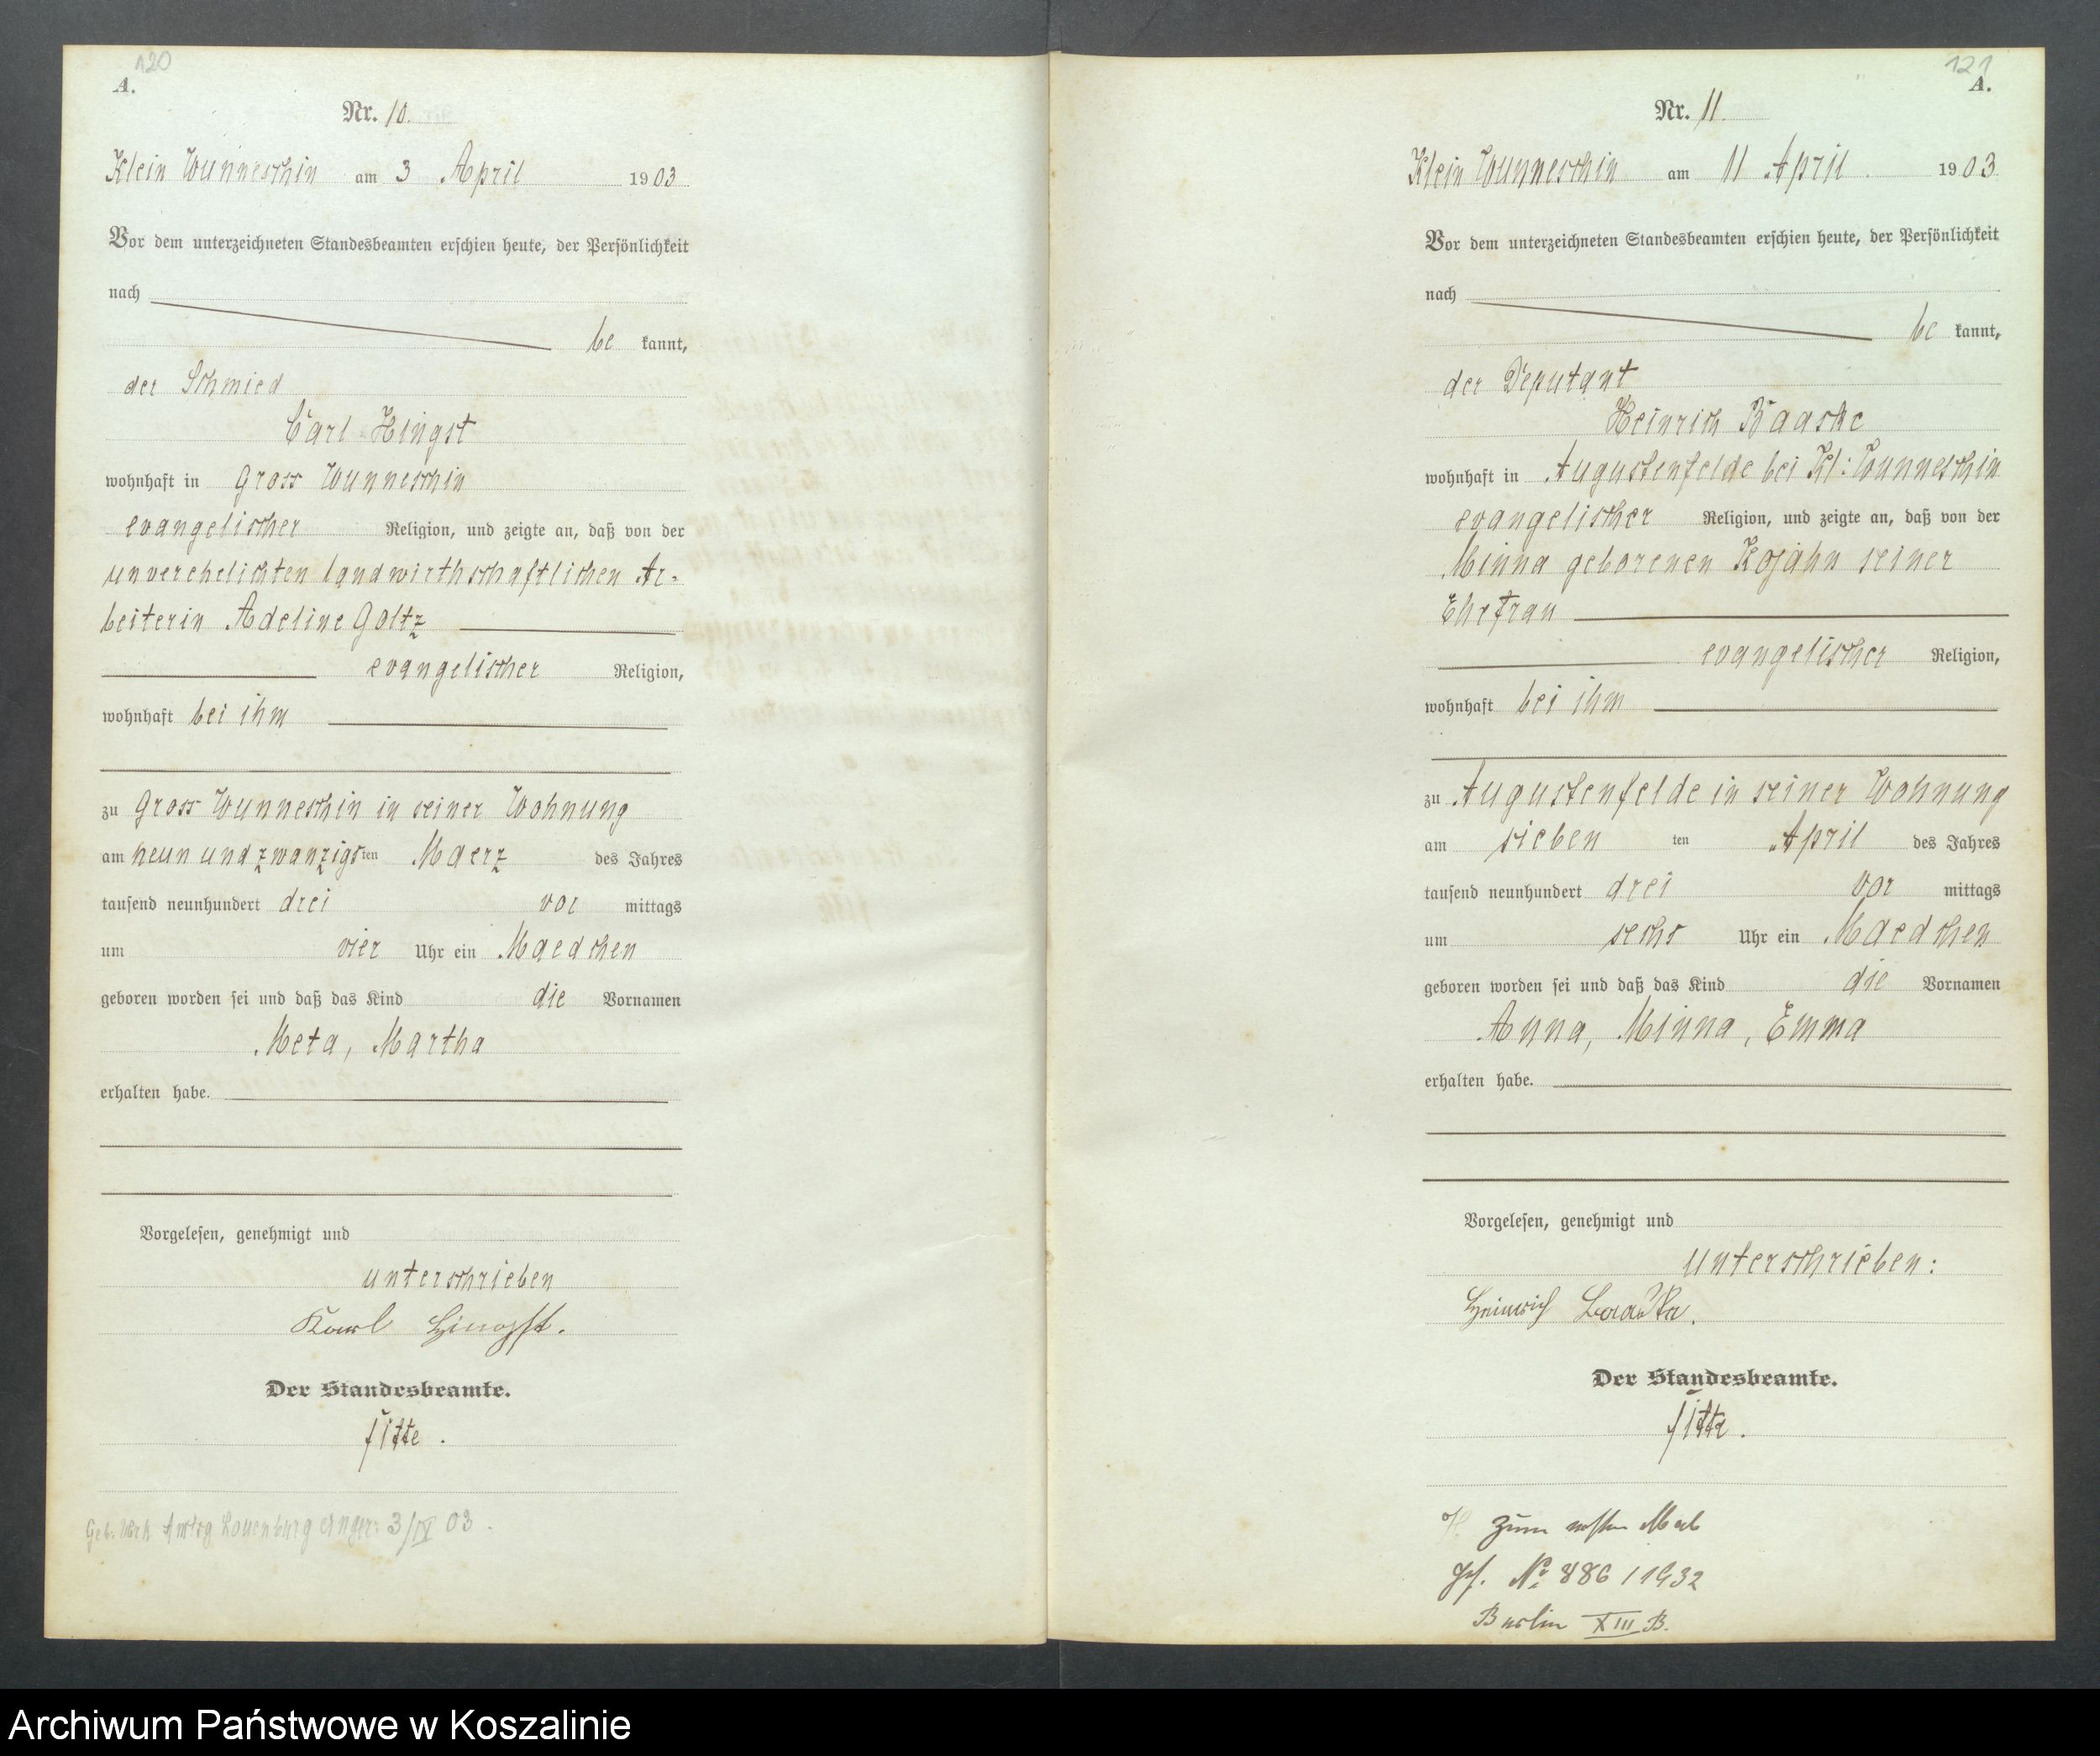 120
A.
Nr. 10.
Klein Wunneschin am 3 April 1903
Vor dem unterzeichneten Standesbeamten erschien heute, der Persönlichkeit
nach
be kannt,
der Schmied
Carl Hingst
wohnhaft in Gross Wunneschin
evangelischer Religion, und zeigte an, daß von der
unverehelichten landwirthschaftlichen Ar-
beiterin Adeline Goltz
evangelischer Religion,
wohnhaft bei ihm
zu Gross Wunneschin in seiner Wohnung
am neun und zwanzigsten Maerz des Jahres
tausend neunhundert drei vor mittags
um vier Uhr ein Maedchen
geboren worden sei und daß das Kind die Vornamen
Meta, Martha
erhalten habe.
Vorgelesen, genehmigt und
unterschrieben
Karl Hingst.
Der Standesbeamte.
Fitte.
3/IV 03.
121
A.
Nr. 11.
Klein Wunneschin am 11 April 1903
Vor dem unterzeichneten Standesbeamten erschien heute, der Persönlichkeit
nach
be kannt,
der Deputant
Heinrich Baaske
wohnhaft in Augustenfelde bei Kl: Wunneschin
evangelischer Religion, und zeigte an, daß von der
Minna geborenen Kojahn seiner
Ehefrau
evangelischer Religion,
wohnhaft bei ihm
zu Augustenfelde in seiner Wohnung
am sieben ten April des Jahres
tausend neunhundert drei vor mittags
um sechs Uhr ein Maedchen
geboren worden sei und daß das Kind die Vornamen
Anna, Minna, Emma
erhalten habe.
Vorgelesen, genehmigt und
unterschrieben:
Heinrich Baaske.
Der Standesbeamte.
Fitte.
zum ersten Mal
No 886/1932
Berlin XIII B.
Archiwum Państwowe w Koszalinie